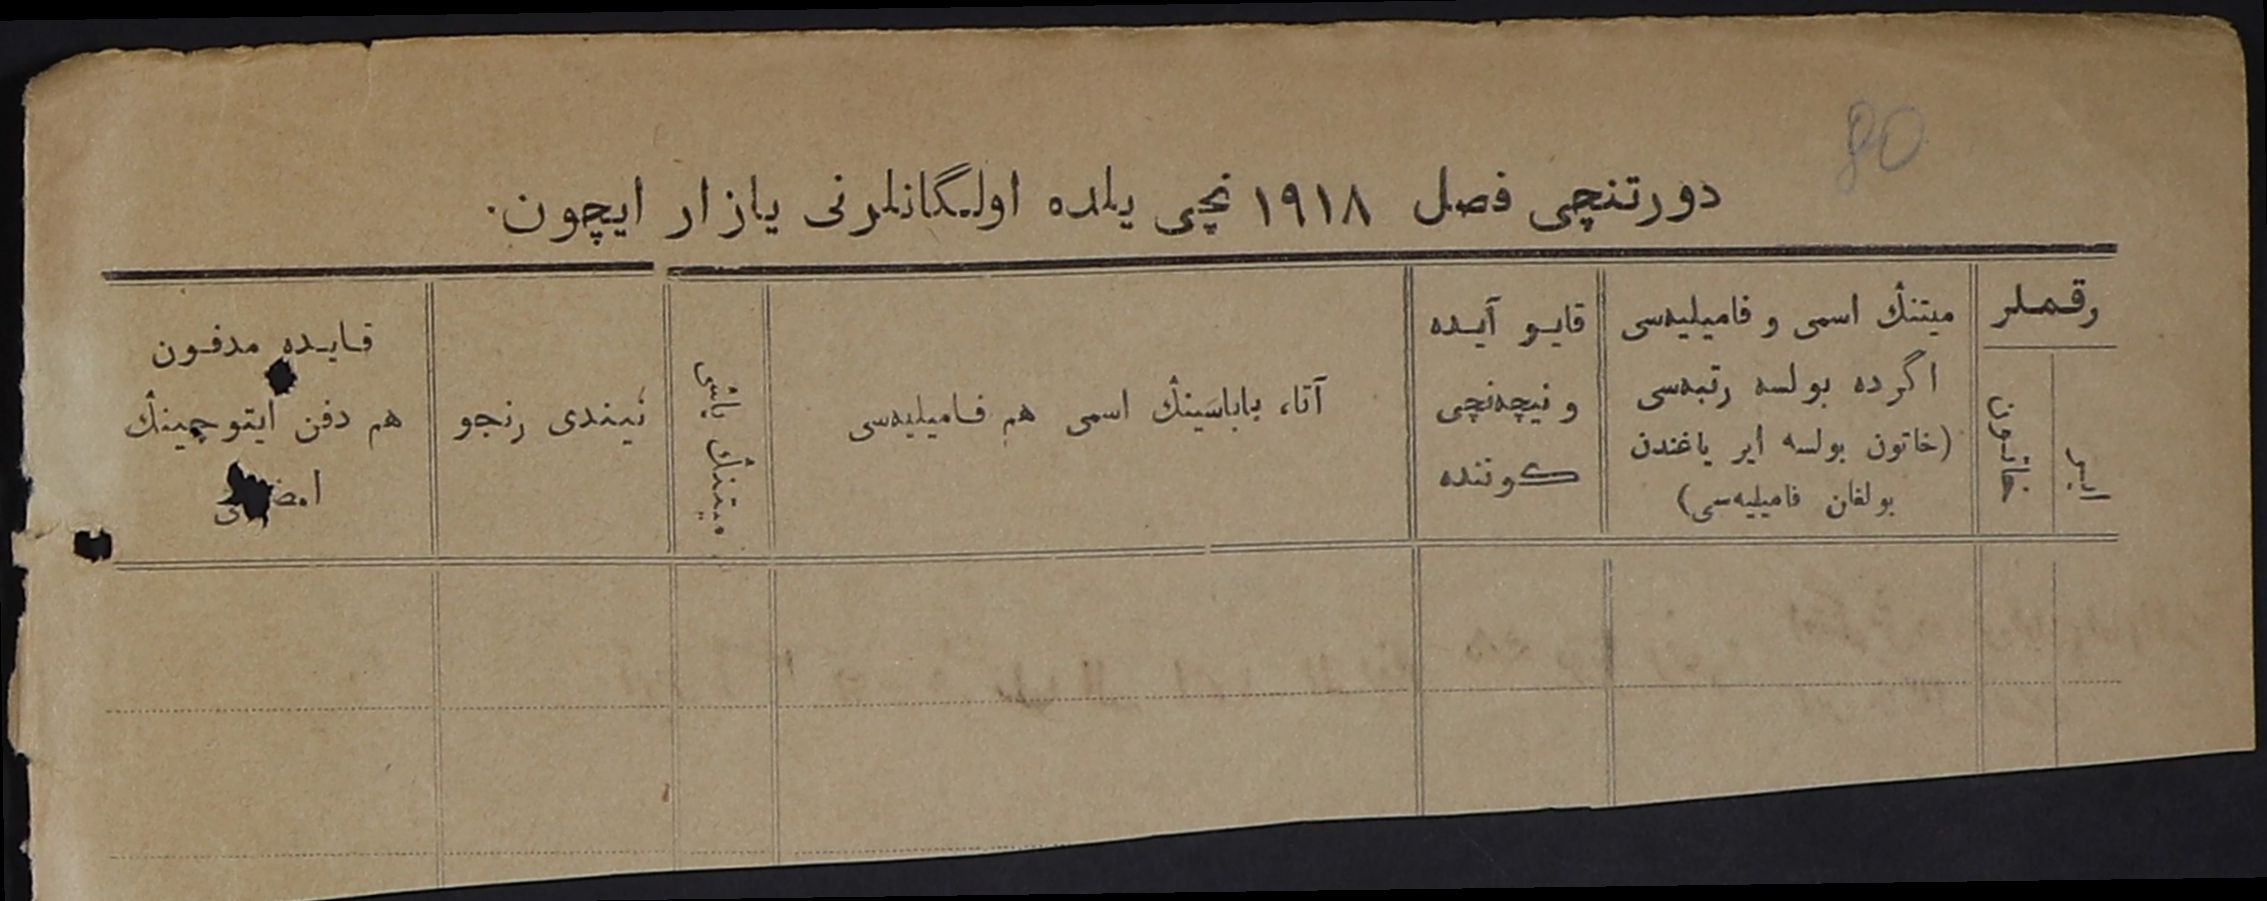 80
دورتنچی فصل ١٩١٨ نچی یلده اولگانلرنی یازار ایچون.
رقملر
ایر
خاتون
میتنڭ اسمی و فامیلیه‌سی
اگرده بولسه رتبه‌سی
(خاتون بولسه ایر یاغندن
بولغان فامیلیه‌سی)
قایو آیده
و نیچه‌نچی
کوننده
آتا، باباسینڭ اسمی هم فامیلیه‌سی
میتنڭ یاشی
نیندی رنجو
قایده مدفون
هم دفن ایتوچینڭ